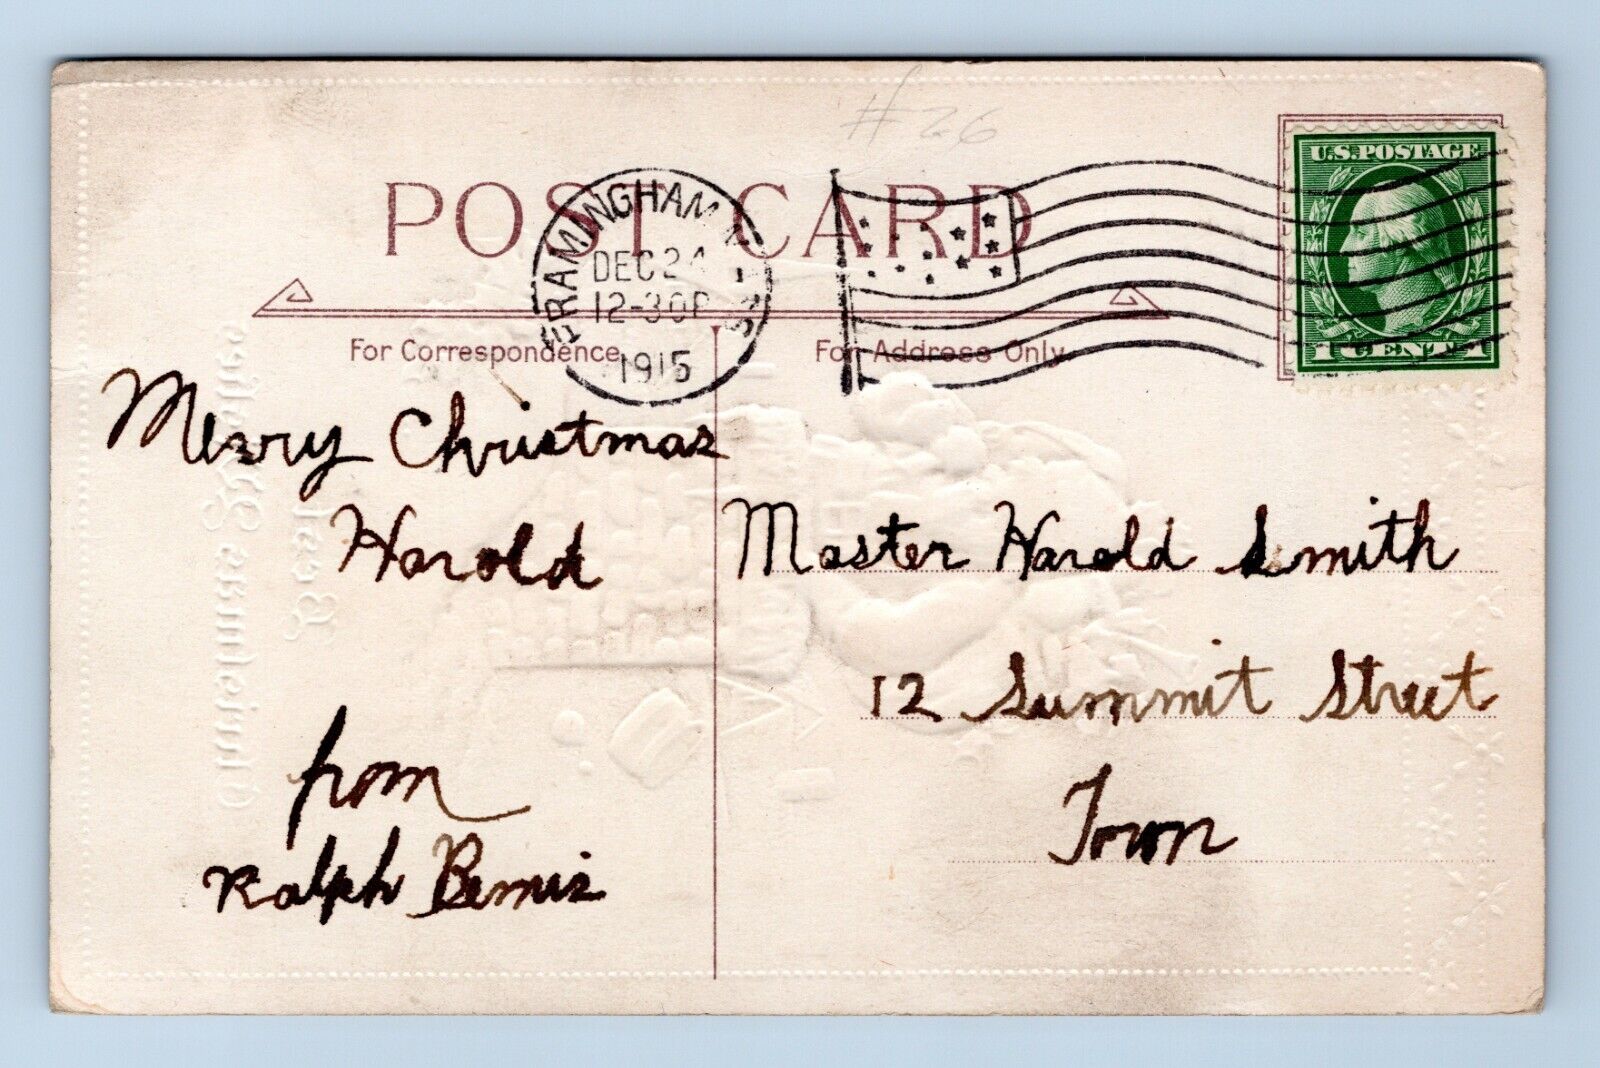 #26
U.S.POSTAGE
1 CENT 1
POST CARD
FRAMINGHAM MASS
DEC 24
12-30P
1915
For Correspondence
For Address Only
Merry Christmas
Harold
from
Ralph Bemis
Master Harold Smith
12 Summit Street
Town